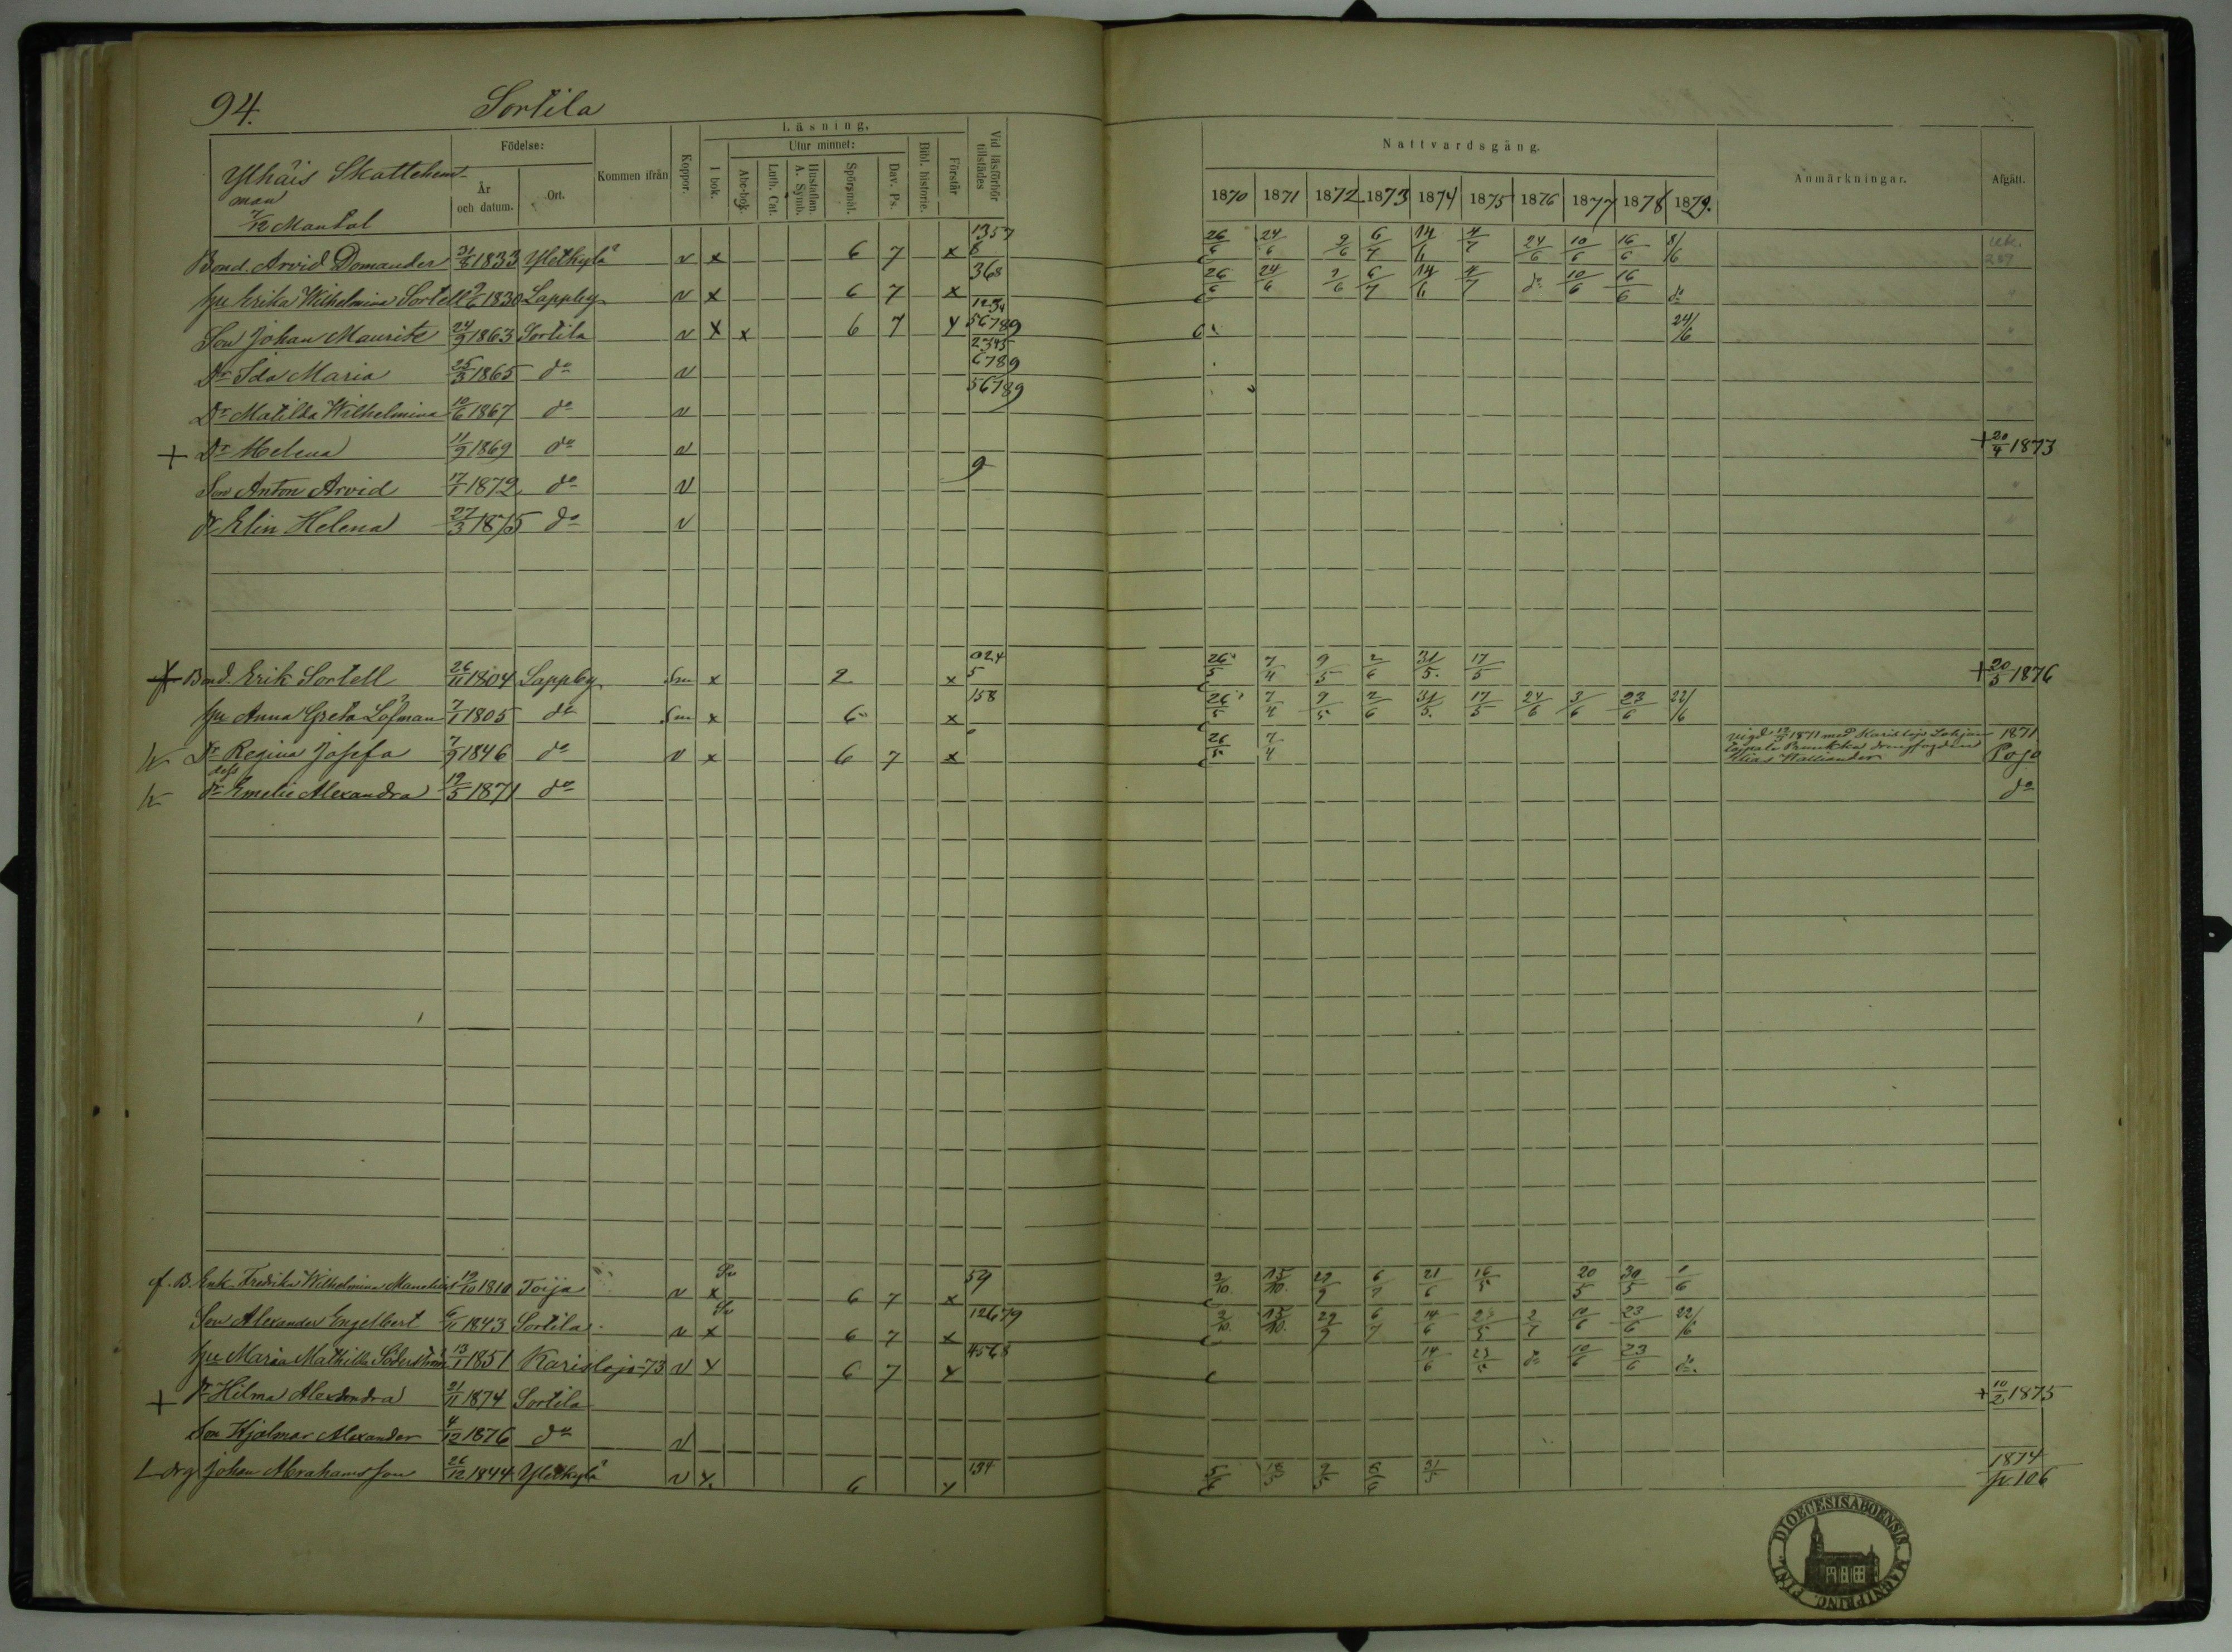 94. Sortila
Läsning.
Födelse: Utur minnet:
Kommen ifrån Koppor. I bok. Abc-bok. Luth. Cat. Hustaflan. A. Symb. Spörsmål. Dav. Ps. Bibl. historie. Förstår Vid läsförhör tillstädes
År och datum. Ort.
Nattvardsgång. Anmärkningar. Afgått.
1870 1871 1872 1873 1874 1875 1876 1877 1878 1879.
Ylhäis Skattehem-
man
7/12 Mantal
Bond. Arvid Domander 1833 Yletkylä v x 6 7 x 1357 8 26/6 24/6 9/6 6/7 14/6 4/7 24/6 10/6 16/6 8/6
hu Erika Wilhelmina Sortell 9/6 1830 Lappby v x 6 7 x 368 26/6 24/6 9/6 6/7 14/6 4/7 do 10/6 16/6 do
Son Johan Maurits 24/9 1863 Sortila v x x 6 7 x 1234 56789 24/6
Dr Ida Maria 25/3 1865 do v 2345 6789
Dr Matilda Wilhelmina 10/6 1867 do v 56789
+ Dr Helena 11/9 1869 do v + 20/4 1873
Son Anton Arvid 17/1 1872 do v 9
dr Elin Helena 27/3 1875 do v
+ Bond. Erik Sortell 26/11 1804 Lappby x 2 x 024 5 26/5 7/4 9/5 2/6 31/5 17/5 + 20/5 1876
hu Anna Greta Löfman 7/1 1805 do x 6 x 158 26/5 7/4 9/5 2/6 31/5 17/5 24/6 3/6 23/6 22/6
Dr Regina Josefa 7/9 1846 do v x 6 7 x 0 26/5 7/4 vigd 1871 med Karislojo Lohjan 1871
Pojo
dess dr Emelie Alexandra 19/5 1871 do do
f. B. Enk. Fredrika Wilhelmina 19/10 1810 Toija v x Sv 6 7 x 59 2/10 15/10 29/9 6/7 21/6 16/5 20/5 30/5 1/6
Son Alexander Engelbert 6/11 1843 Sortila v x Sv 6 7 x 12679 2/10 15/10 29/9 6/7 14/6 23/5 2/7 10/6 23/6 22/6
hu Maria Mathilda Söderström 13/1 1851 Karislojo-73 v x 6 7 x 4568 14/6 23/5 do 10/6 23/6 do
+ dr Hilma Alexandra 21/11 1874 Sortila + 10/2 1875
Son Hjalmar Alexander 4/12 1876 do v
drg Johan Abrahamsson 26/12 1844 Yletkylä v x 6 x 134 5/6 18/5 9/5 31/5 1874
p. 106
DIOECESIS ABOENSIS. MAGNI PRINC. FINL.